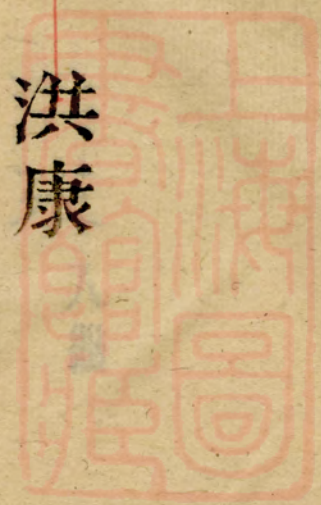 洪康
上海圖
書館藏